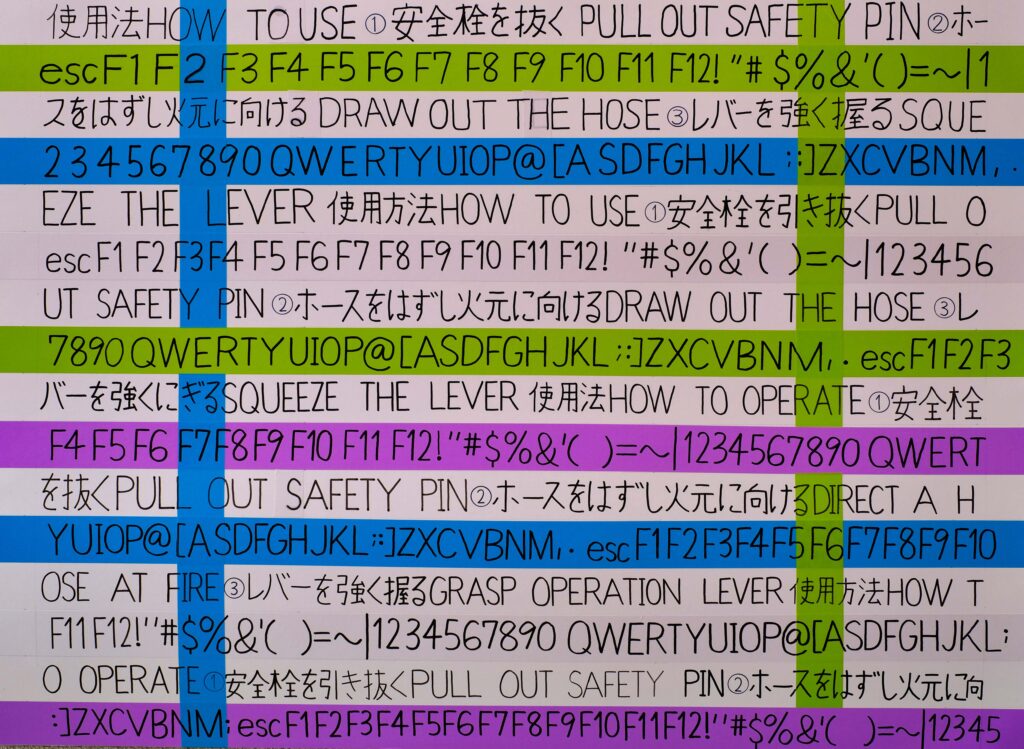 使用法HOW TO USE①安全栓を抜く PULL OUT SAFETY PIN②ホー
escF1 F2 F3 F4 F5 F6 F7 F8 F9 F10 F11 F12! "# $%&'( )=～|1
スをはずし火元に向ける DRAW OUT THE HOSE③レバーを強く握るSQUE
234567890QWERTYUIOP@[ASDFGHJKL ;:]ZXCVBNM, .
EZE THE LEVER 使用方法HOW TO USE①安全栓を引き抜くPULL O
escF1 F2 F3F4 F5 F6 F7 F8 F9 F10 F11 F12! "#$%&'( )=～|123456
UT SAFETY PIN②ホースをはずし火元に向けるDRAW OUT THE HOSE③レ
7890QWERTYUIOP@[ASDFGHJKL ;:]ZXCVBNM, . escF1F2F3
バーを強くにぎるSQUEEZE THE LEVER 使用法HOW TO OPERATE①安全栓
F4F5F6 F7F8F9 F10 F11 F12!"#$%&'( )=～|1234567890QWERT
を抜くPULL OUT SAFETY PIN②ホースをはずし火元に向けるDIRECT A H
YUIOP@[ASDFGHJKL;:]ZXCVBNM, . escF1F2F3F4F5F6F7F8F9F10
OSE AT FIRE③レバーを強く握るGRASP OPERATION LEVER使用方法HOW T
F11F12!"#$%&'( )=～|1234567890 QWERTYUIOP@[ASDFGHJKL;
O OPERATE①安全栓を引き抜くPULL OUT SAFETY PIN②ホースをはずし火元に向
:]ZXCVBNM; escF1F2F3F4F5F6F7F8F9F10F11F12!"#$%&'( )=～|12345